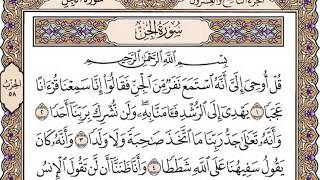 سُورَةُ الْجِنِّ
بِسْمِ اللَّهِ الرَّحْمَٰنِ الرَّحِيمِ
قُلْ أُوحِيَ إِلَيَّ أَنَّهُ اسْتَمَعَ نَفَرٌ مِّنَ الْجِنِّ فَقَالُوا إِنَّا سَمِعْنَا قُرْءَانًا
عَجَبًا ١ يَهْدِي إِلَى الرُّشْدِ فَـَٔامَنَّا بِهِۦ وَلَن نُّشْرِكَ بِرَبِّنَا أَحَدًا ٢
وَأَنَّهُۥ تَعَٰلَىٰ جَدُّ رَبِّنَا مَا اتَّخَذَ صَٰحِبَةً وَلَا وَلَدًا ٣ وَأَنَّهُۥ كَانَ
يَقُولُ سَفِيهُنَا عَلَى اللَّهِ شَطَطًا ٤ وَأَنَّا ظَنَنَّا أَن لَّن تَقُولَ الْإِنسُ
الحزب
٥٨